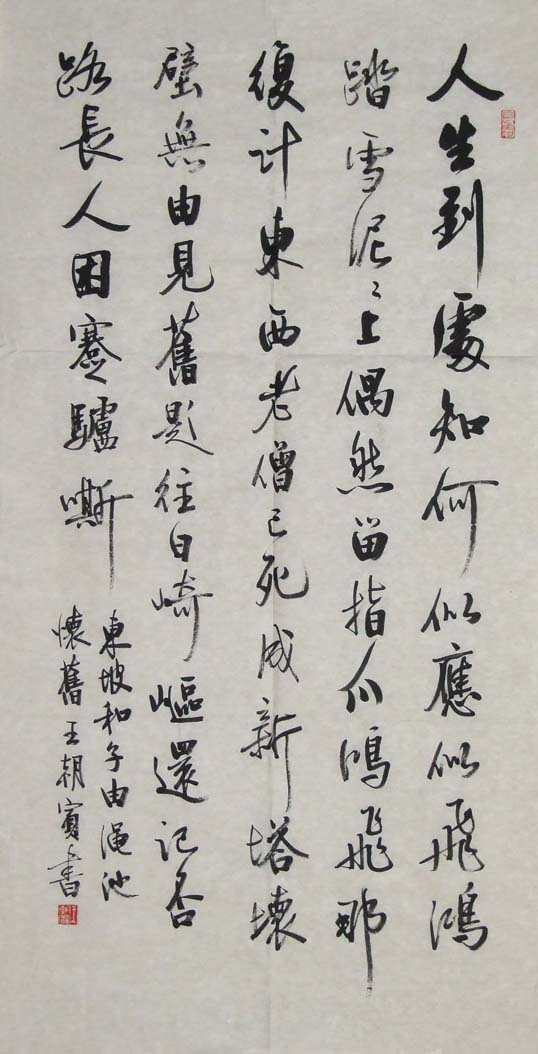 人生到處知何似應似飛鴻
踏雪泥〻上偶然留指爪鴻飛那
復計東西老僧已死成新塔壞
壁無由見舊題往日崎嶇還記否
路長人困蹇驢嘶
東坡和子由澠池
懷舊王朝賓書